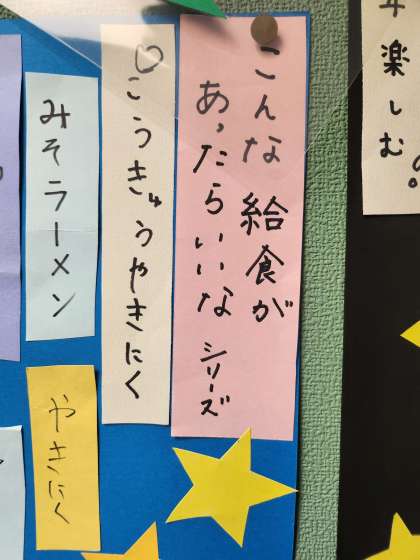 楽しむ
こんな給食が
あったらいいな
シリーズ
♡こうきゅうやきにく
みそラーメン
やきにく